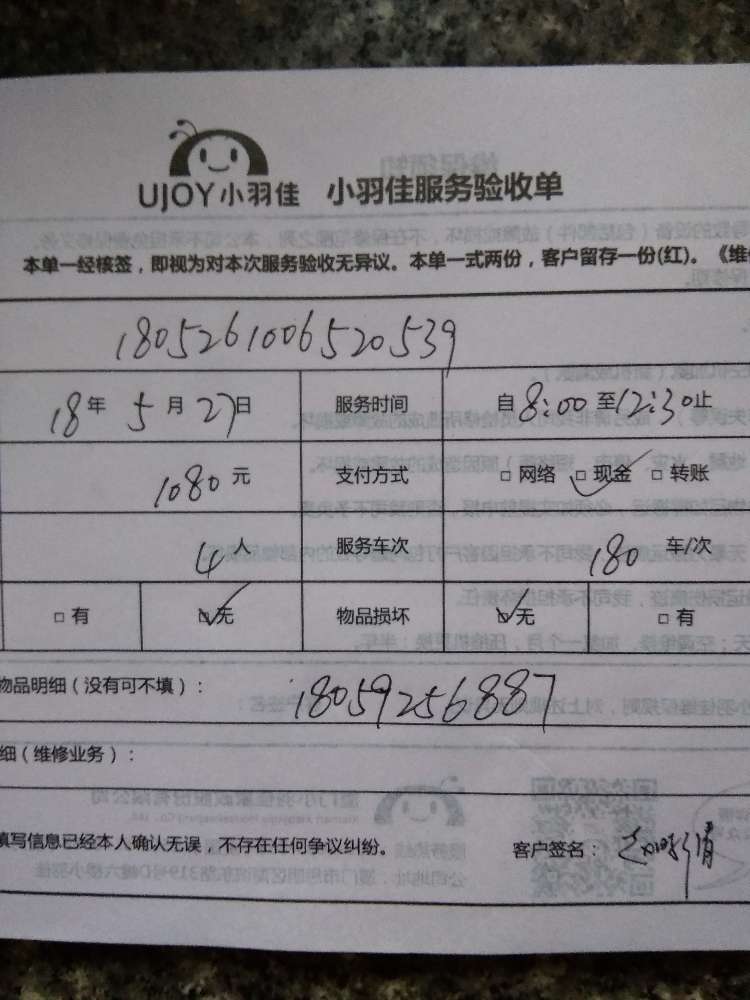 UJOY小羽佳 小羽佳服务验收单
本单一经核签，即视为对本次服务验收无异议。本单一式两份，客户留存一份(红)。《维
180526100652 0539
18年 5月 27日 服务时间 自 8:00 至 12:30 止
1080 元 支付方式 □ 网络 □ 现金 □ 转账
4 人 服务车次 180 车/次
□ 有 □ 无 物品损坏 □ 无 □ 有
物品明细（没有可不填）：18059256887
细（维修业务）：
填写信息已经本人确认无误，不存在任何争议纠纷。 客户签名：